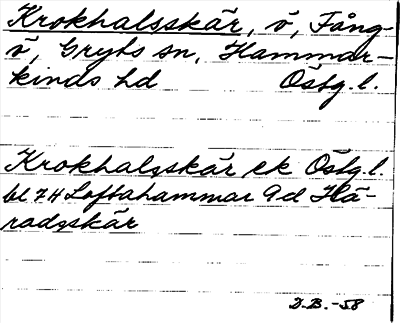 Krokhalsskär, ö, Fång-
ö, Gryts sn, Hammar-
kinds hd Östg.l.
Krokhalsskär ek Östg.l.
bl 74 Loftahammar 9d Hä-
radsskär
D.B.-58